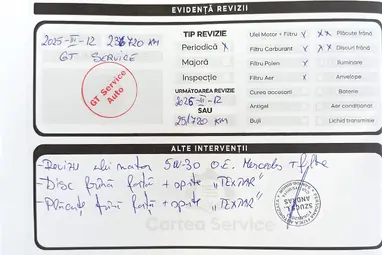 EVIDENȚĂ REVIZII
2025-II-12 236720 KM
GT SERVICE
GT Service
Auto
TIP REVIZIE
Periodică X
Majoră
Inspecție
URMĂTOAREA REVIZIE
2026-II-12
SAU
251720 KM
Ulei Motor + Filtru X
Filtru Carburant X
Filtru Polen X
Filtru Aer X
Curea accesorii
Antigel
Bujii
XX Plăcuțe frână
XX Discuri frână
Iluminare
Anvelope
Baterie
Aer conditionat
Lichid transmisie
ALTE INTERVENȚII
Revizie ulei motor 5W-30 O.E. Mercedes + filtre
- Disc frână față + spate „TEXTAR"
- Plăcuțe frână față + spate „TEXTAR"
Cartea Service